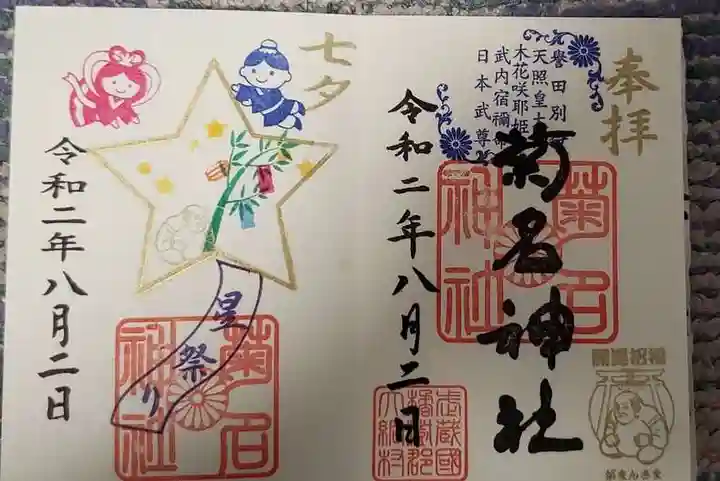 奉拝
譽田別
天照皇大
木花咲耶姫
武内宿禰命
日本武尊
菊名神社
菊名
神社
令和二年八月二日
武蔵國
橘樹郡
大綱村
七夕
星祭り
菊名
神社
令和二年八月二日